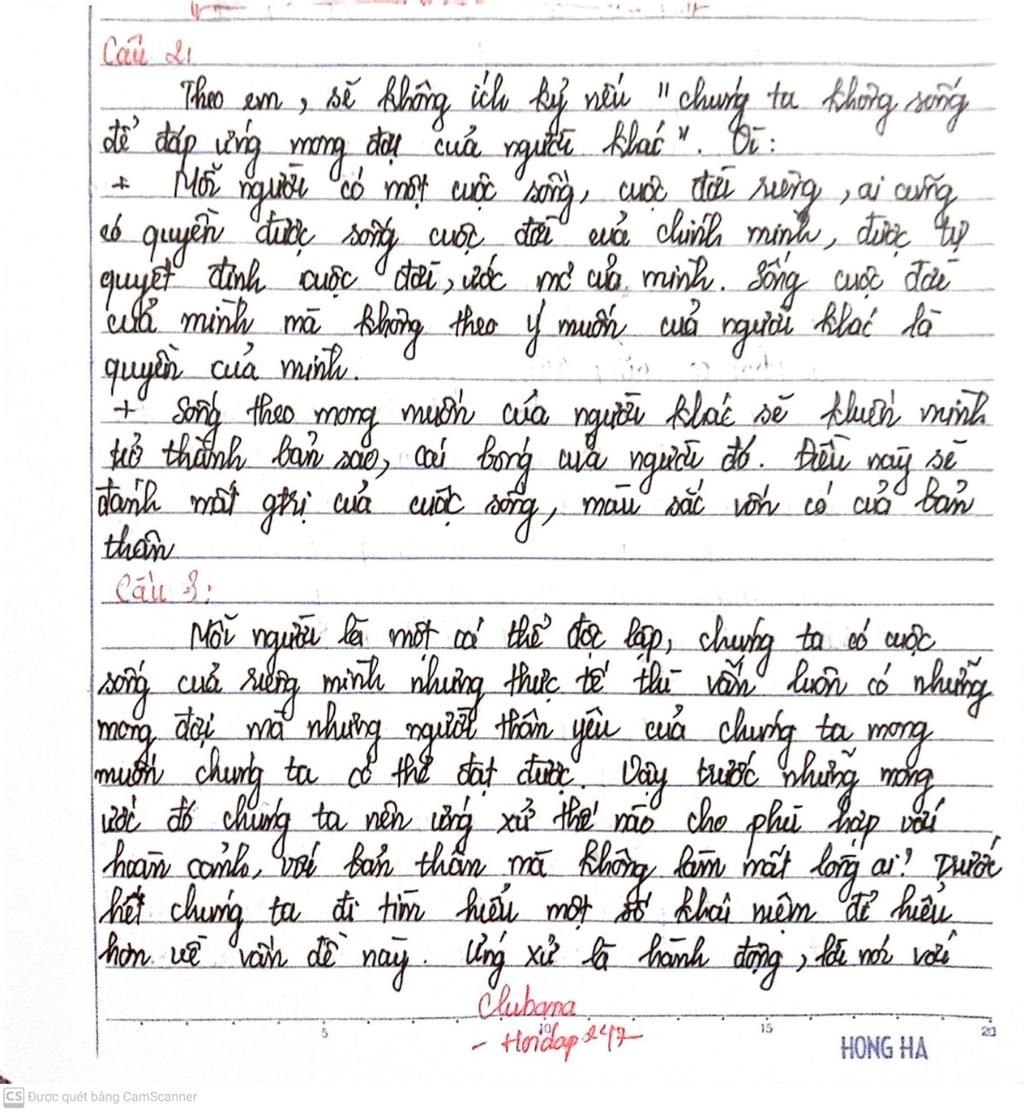 Câu 2:
Theo em, sẽ không ích kỷ nếu "chúng ta không sống
để đáp ứng mong đợi của người khác". Vì:
+ Mỗi người có một cuộc sống, cuộc đời riêng, ai cũng
có quyền được sống cuộc đời của chính mình, được tự
quyết định cuộc đời, ước mơ của mình. Sống cuộc đời
của mình mà không theo ý muốn của người khác là
quyền của mình.
+ Sống theo mong muốn của người khác sẽ khiến mình
trở thành bản sao, cái bóng của người đó. Điều này sẽ
đánh mất gtrị của cuộc sống, màu sắc vốn có của bản
thân
Câu 3:
Mỗi người là một cá thể độc lập, chúng ta có cuộc
sống của riêng mình nhưng thực tế thì vẫn luôn có những
mong đợi mà những người thân yêu của chúng ta mong
muốn chúng ta có thể đạt được. Vậy trước những mong
ước đó chúng ta nên ứng xử thế nào cho phù hợp với
hoàn cảnh, với bản thân mà không làm mất lòng ai? Trước
hết chúng ta đi tìm hiểu một số khái niệm để hiểu
hơn về vấn đề này. Ứng xử là hành động, lời nói với
Clubama
- Hoidap247-
5 10 15 20
HONG HA
CS Được quét bằng CamScanner